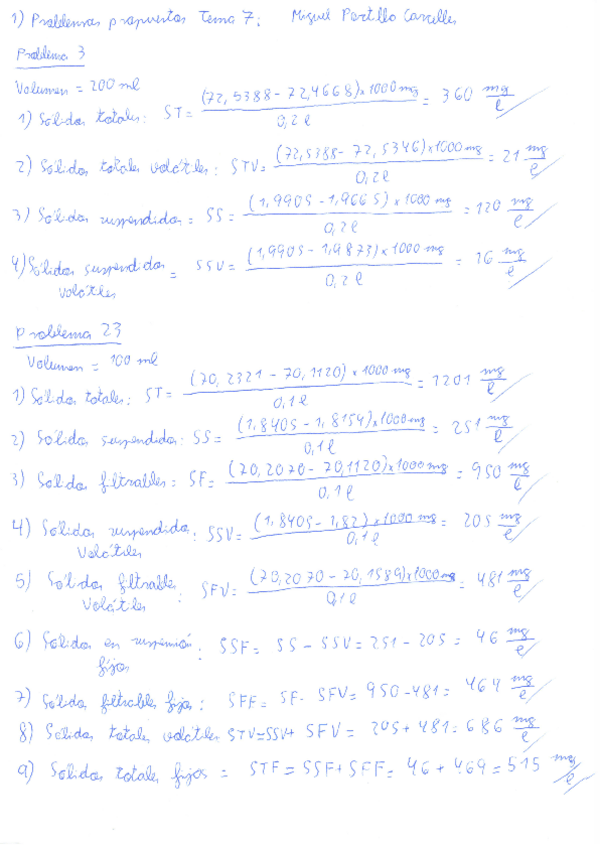 1) Problemas propuestos Tema 7: Miguel Portillo Canelles
Problema 3
Volumen = 200 ml
1) Sólidos totales: ST = (72,5388 - 72,4668)x1000 mg / 0,2 l = 360 mg/l
2) Sólidos totales volátiles: STV = (72,5388 - 72,5346)x1000 mg / 0,2 l = 21 mg/l
3) Sólidos suspendidos = SS = (1,9905 - 1,9665)x1000 mg / 0,2 l = 120 mg/l
4) Sólidos suspendidos volátiles = SSV = (1,9905 - 1,9873)x1000 mg / 0,2 l = 16 mg/l
Problema 23
Volumen = 100 ml
1) Sólidos totales: ST = (70,2321 - 70,1120)x1000 mg / 0,1 l = 1201 mg/l
2) Sólidos suspendidos: SS = (1,8405 - 1,8154)x1000 mg / 0,1 l = 251 mg/l
3) Sólidos filtrables: SF = (70,2070 - 70,1120)x1000 mg / 0,1 l = 950 mg/l
4) Sólidos suspendidos Volátiles: SSV = (1,8405 - 1,82)x1000 mg / 0,1 l = 205 mg/l
5) Sólidos filtrables Volátiles: SFV = (70,2070 - 70,1589)x1000 mg / 0,1 l = 481 mg/l
6) Sólidos en suspensión fijos: SSF = SS - SSV = 251 - 205 = 46 mg/l
7) Sólidos filtrables fijos: SFF = SF - SFV = 950 - 481 = 469 mg/l
8) Sólidos totales volátiles STV = SSV + SFV = 205 + 481 = 686 mg/l
9) Sólidos totales fijos = STF = SSF + SFF = 46 + 469 = 515 mg/l